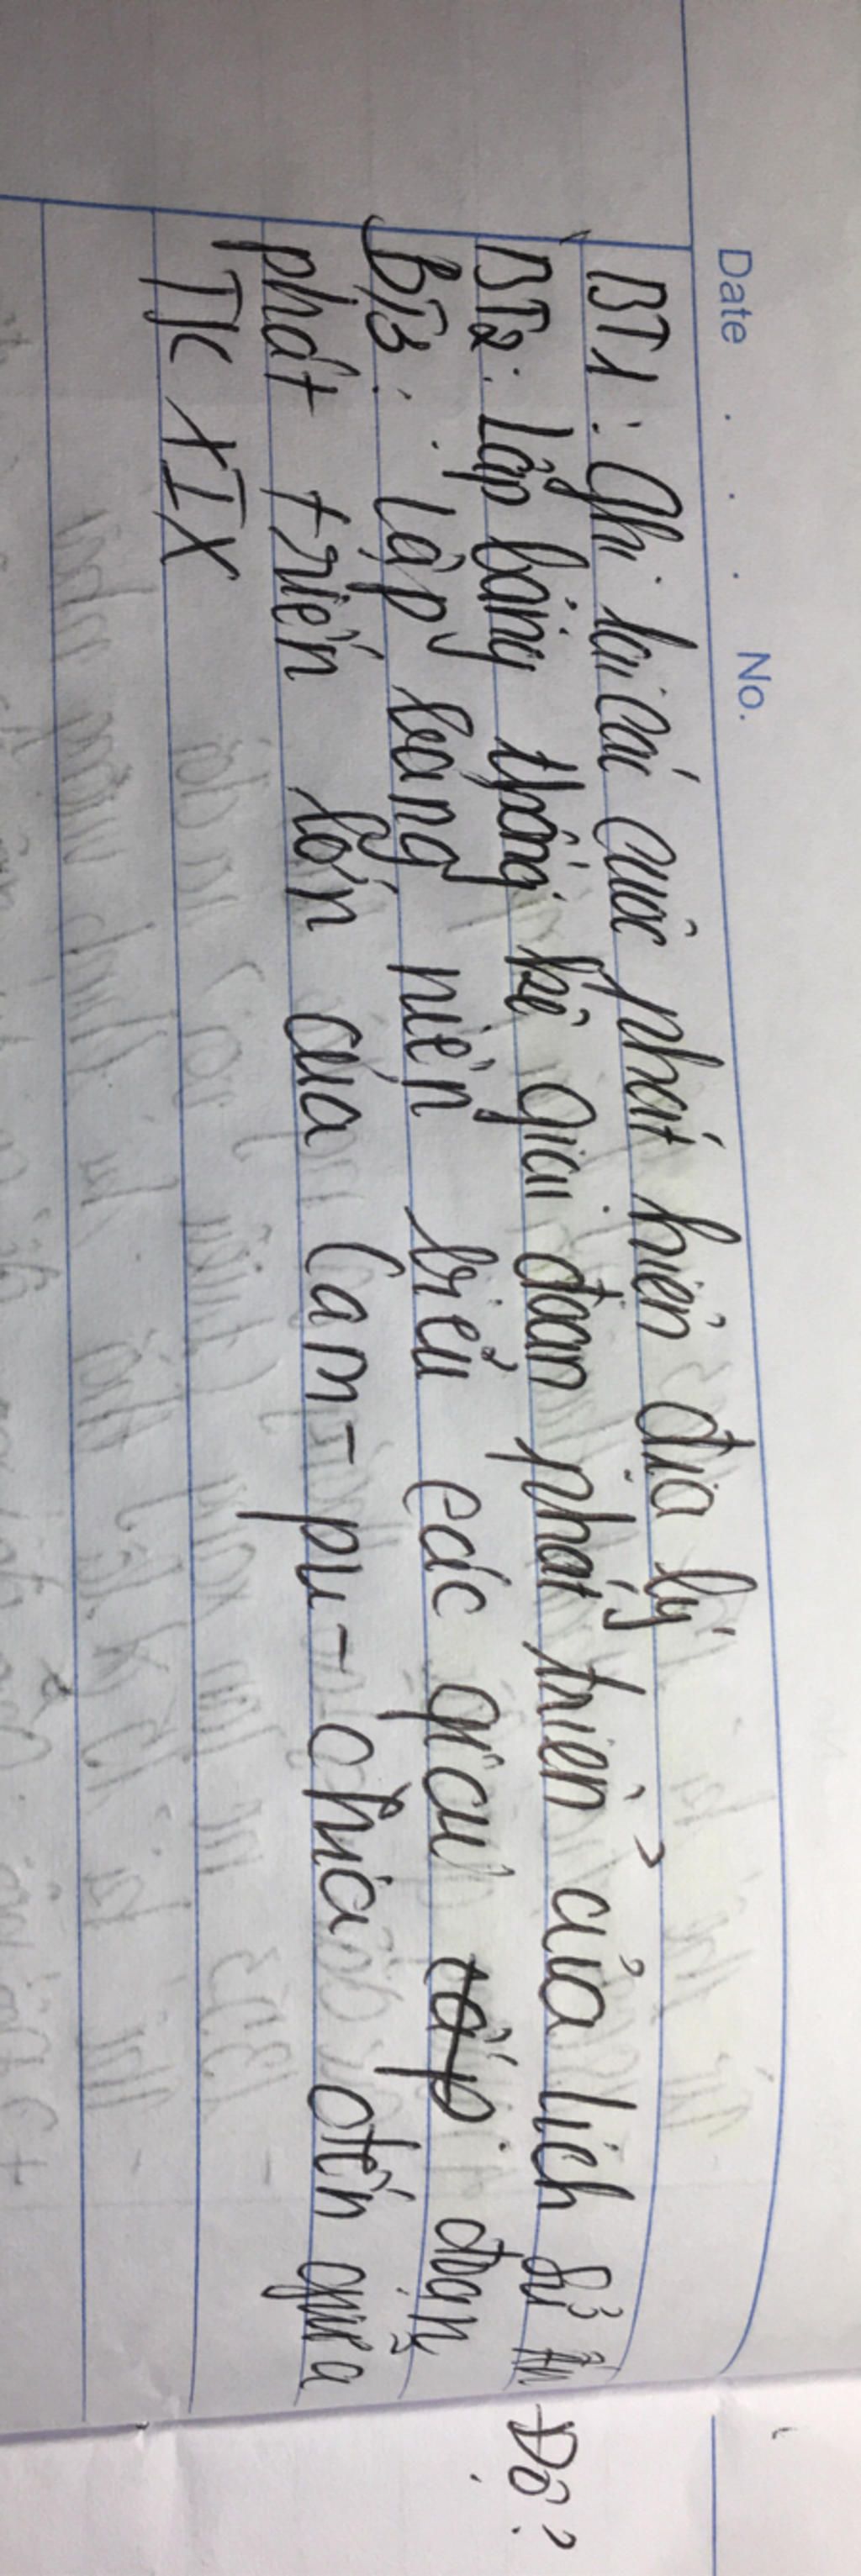 Date . . . No.
BT1: Ghi lại các cuộc phát hiện địa lý
BT2: Lập bảng thống kê giai đoạn phát triển của lịch sử Ấn Độ?
BT3: lập bảng niên biểu các giai đoạn
phát triển lớn của Cam-pu-chia đến giữa
TK XIX